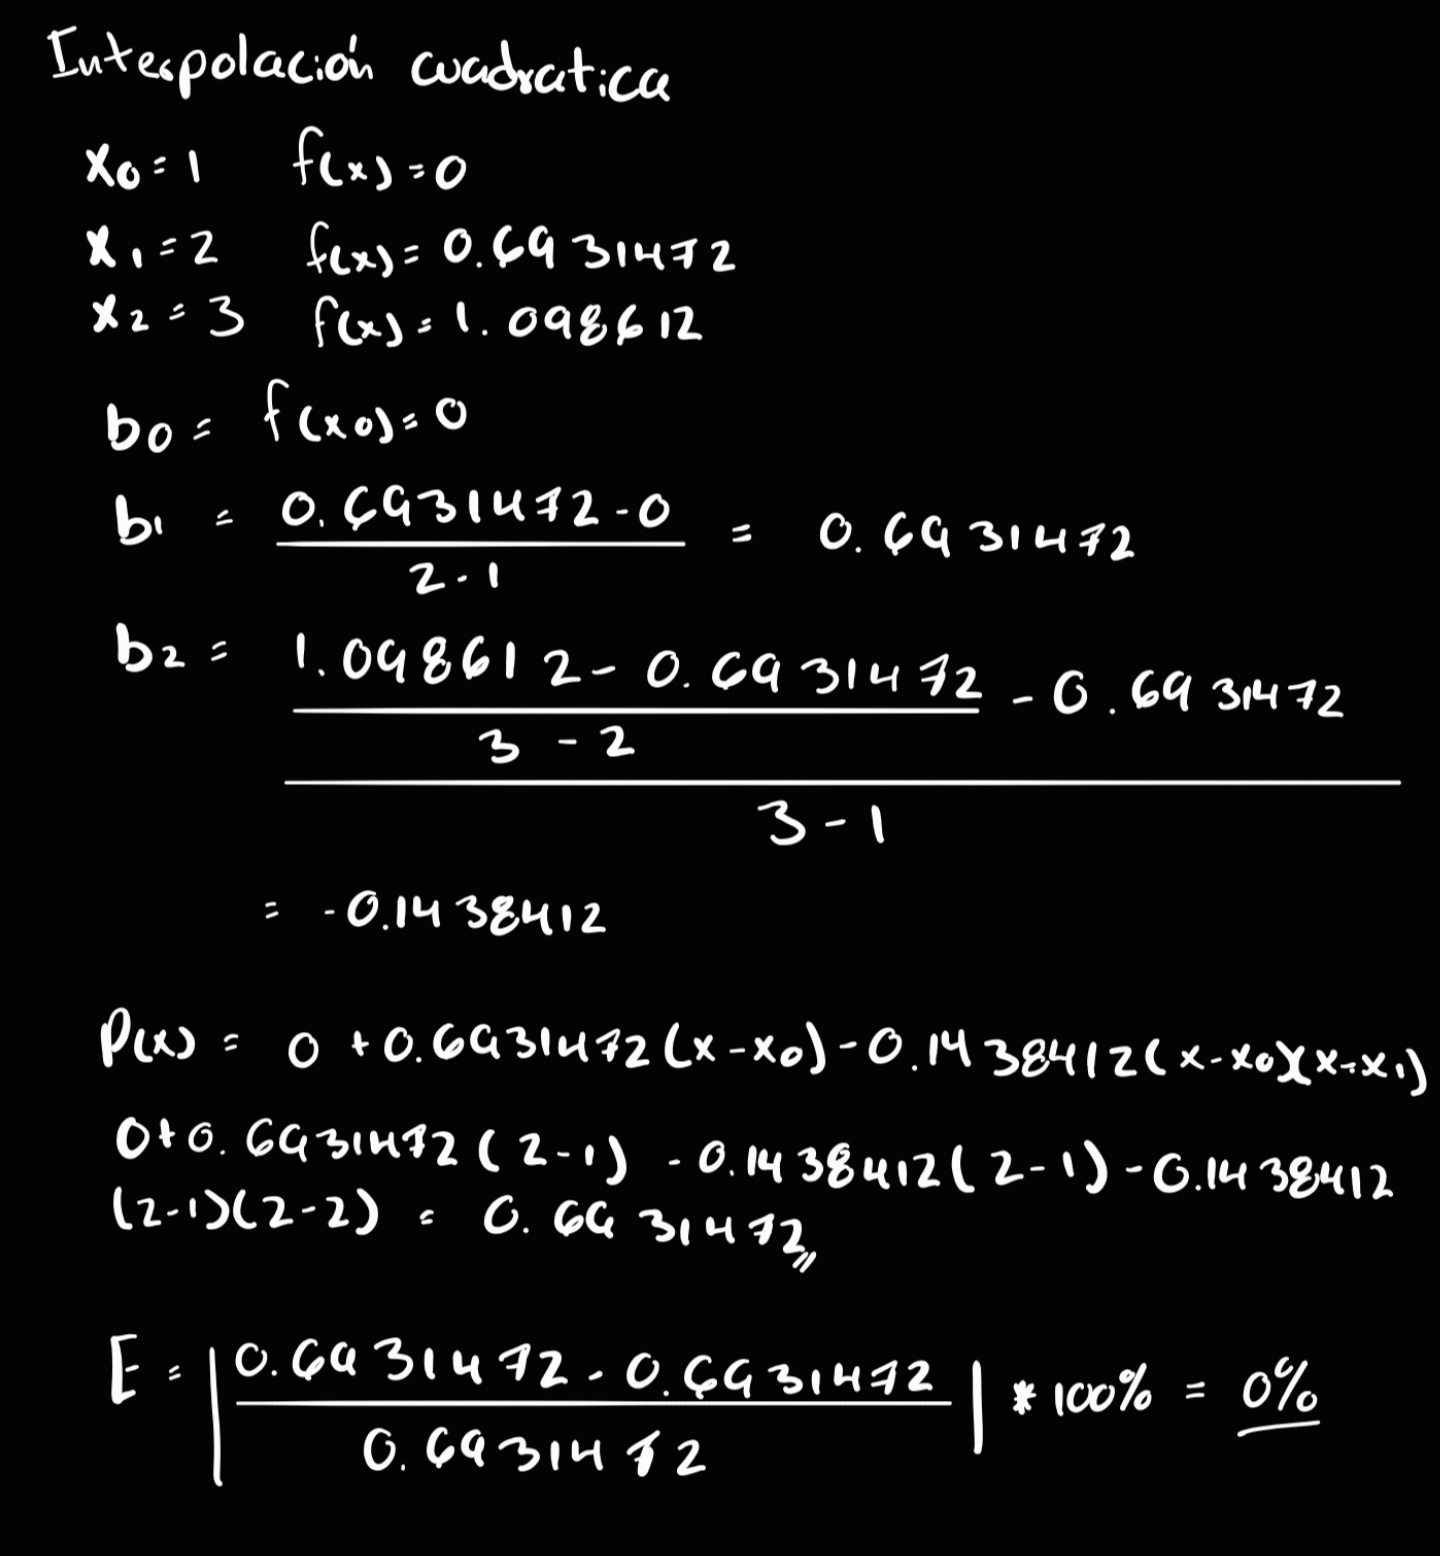 Interpolación cuadratica
x0 = 1 f(x) = 0
x1 = 2 f(x) = 0.6931472
x2 = 3 f(x) = 1.098612
b0 = f(x0) = 0
b1 = 0.6931472 - 0 / 2 - 1 = 0.6931472
b2 = 1.098612 - 0.6931472 / 3 - 2 - 0.6931472
3 - 1
= -0.1438412
P(x) = 0 + 0.6931472(x - x0) - 0.1438412(x - x0)(x - x1)
0 + 0.6931472(2 - 1) - 0.1438412(2 - 1) - 0.1438412
(2 - 1)(2 - 2) = 0.6931472
E = | 0.6931472 - 0.6931472 / 0.6931472 | * 100% = 0%